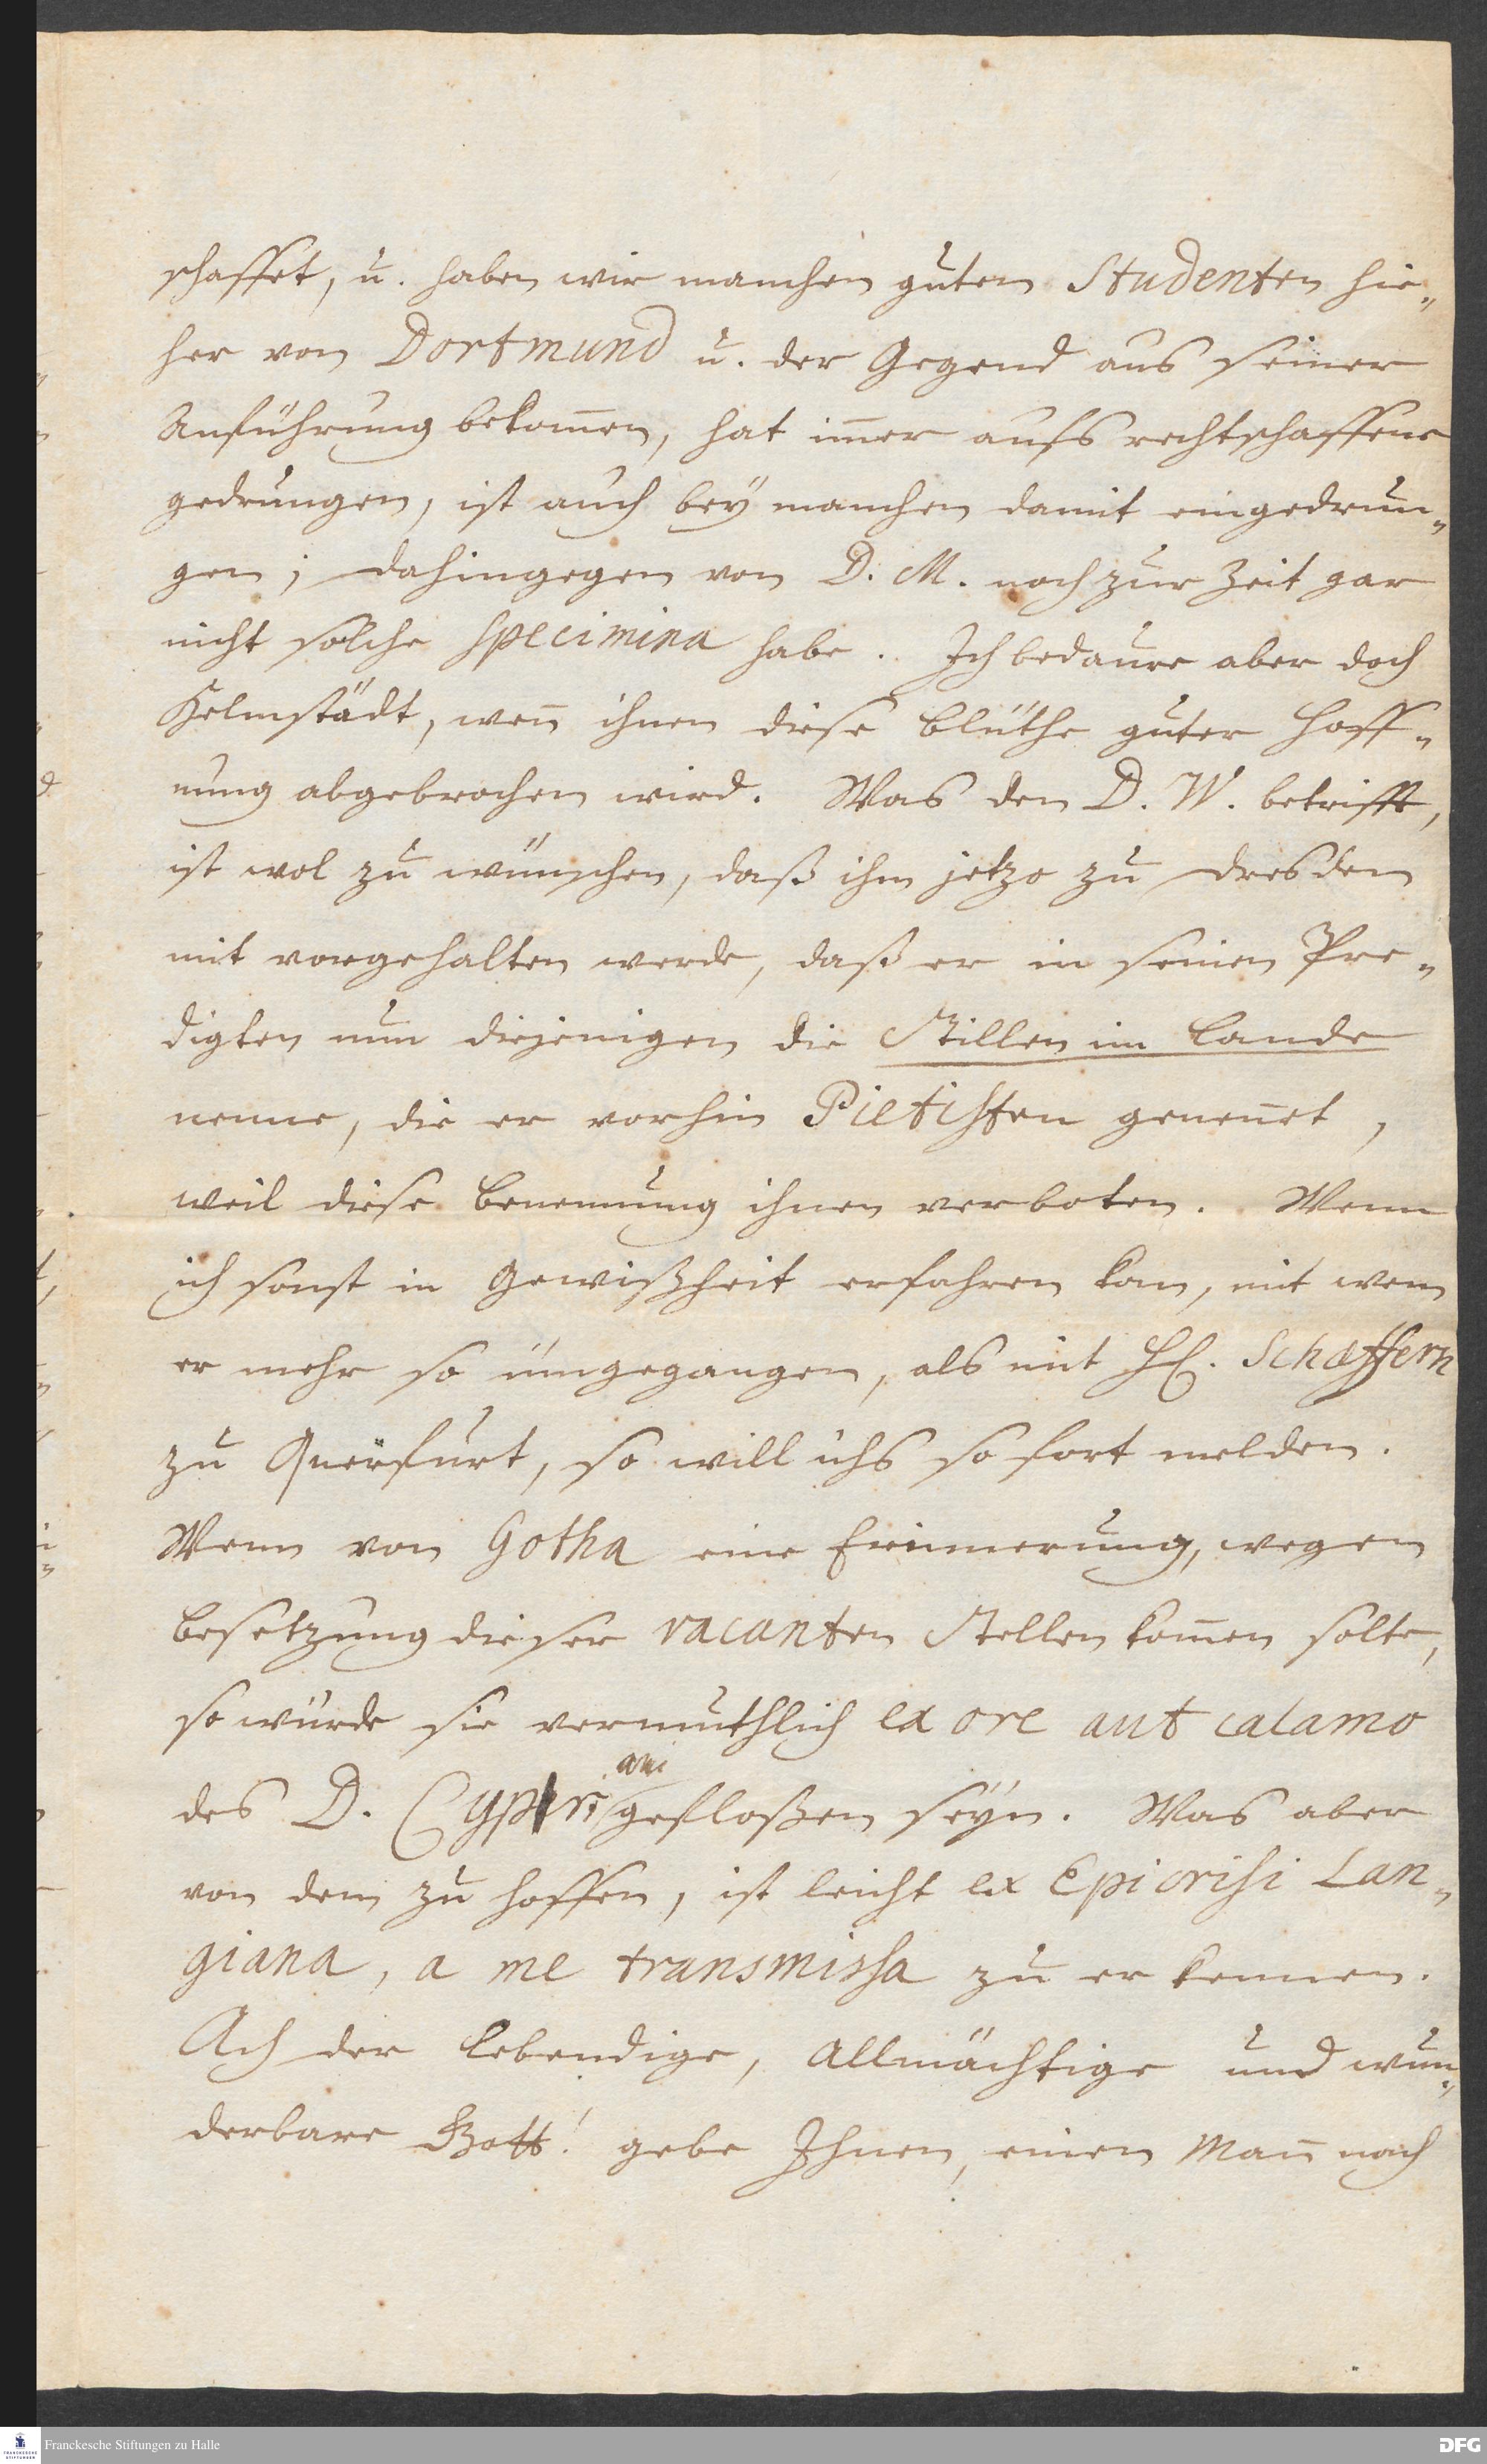 schaffet, u. haben wir manchen guten Studenten hie„
her von Dortmund u. der Gegend aus seiner
Anführung bekom̄en, hat im̄er aufs rechtschaffene
gedrungen, ist auch beÿ manchen damit eingedrun„
gen; dahingegen von D. M. noch zur Zeit gar
nicht solche specimina habe. Ich bedaure aber doch
Helmstädt, wen̄ ihnen diese Blüthe guter Hoff„
nung abgebrochen wird. Was den D. W. betrifft,
ist wol zu wünschen, daß ihm jetzo zu Dresden
mit vorgehalten werde, daß er in seinen Pre„
digten nun diejenigen die Stillen im Lande
nenne, die er vorhin Pietisten genen̄et,
weil diese Benennung ihnen verboten. Wenn
ich sonst in Gewißheit erfahren kan, mit wem
er mehr so umgegangen, als mit H. Schæffern
zu Querfurt, so will ichs so fort melden.
Wenn von Gotha eine Erinnerung, wegen
Besetzung dieser vacanten Stellen kom̄en solte,
so würde sie vermuthlich ex ore aut calamo
des D. Cypriani gefloßen seÿn. Was aber
von dem zu hoffen, ist leicht ex Epicrisi Lan„
giana, a me transmissa zu erkennen.
Ach der lebendige, allmächtige und wun„
derbare Gott! gebe Ihnen, einen Man̄ nach
Franckesche Stiftungen zu Halle
DFG